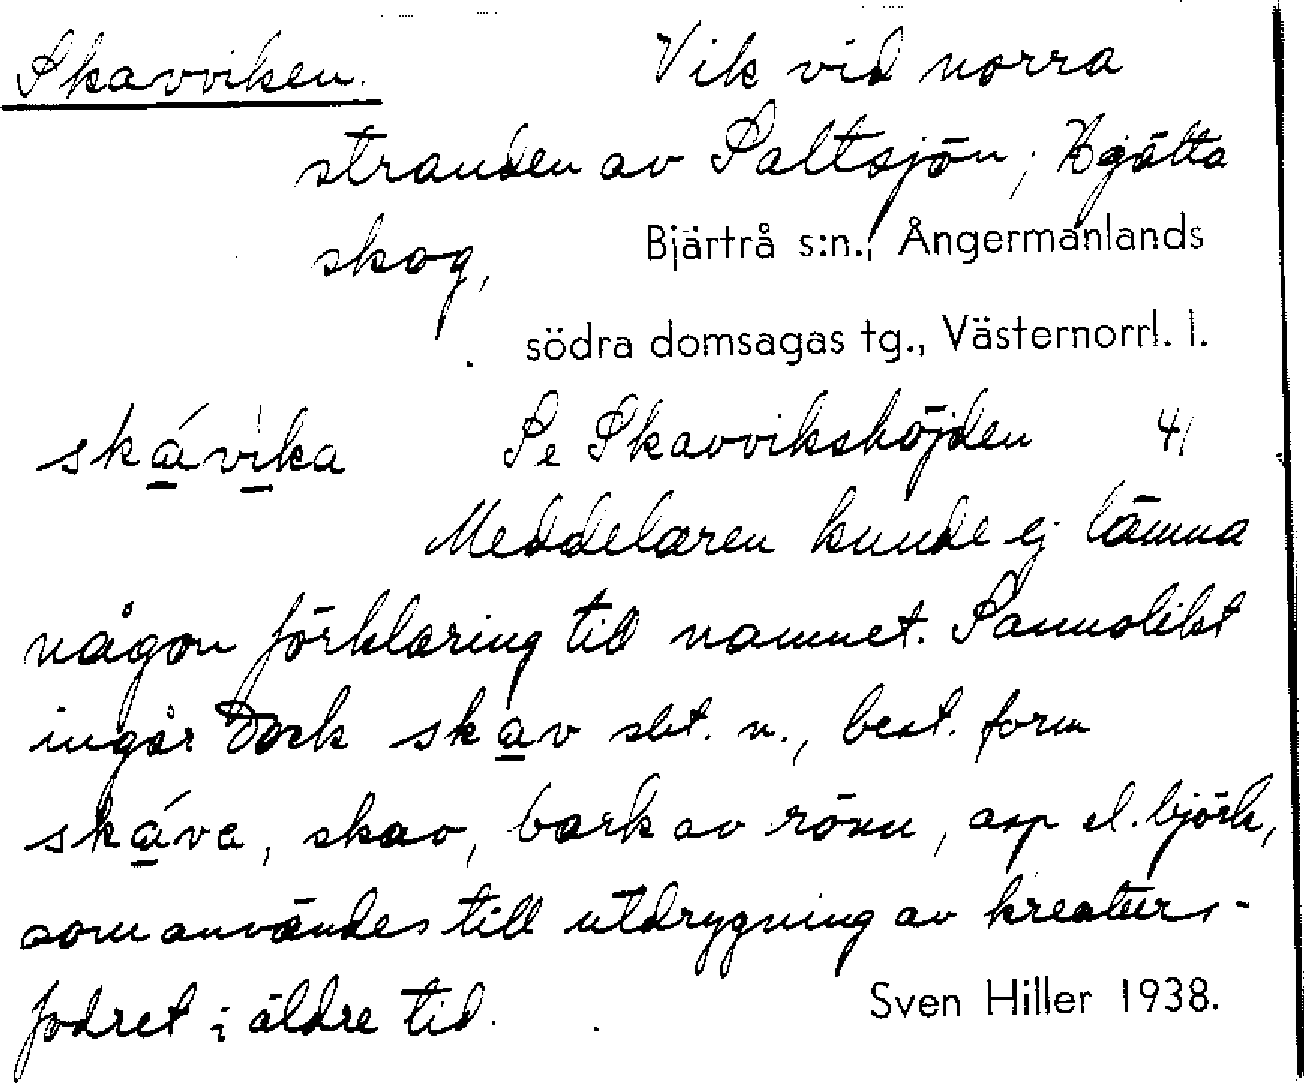 Skavviken. Vik vid norra
stranden av Saltsjön, Hjälta
skog, Bjärtrå s:n., Ångermanlands
södra domsagas tg., Västernorrl. l.
skávika Se Skavvikshöjden 41
Meddelaren kunde ej lämna
någon förklaring till namnet. Sannolikt
ingår dock skav sbt. n., best. form
skáva, skav, bark av rönn, asp el. björk,
som användes till utdrygning av kreaturs-
fodret i äldre tid. Sven Hiller 1938.